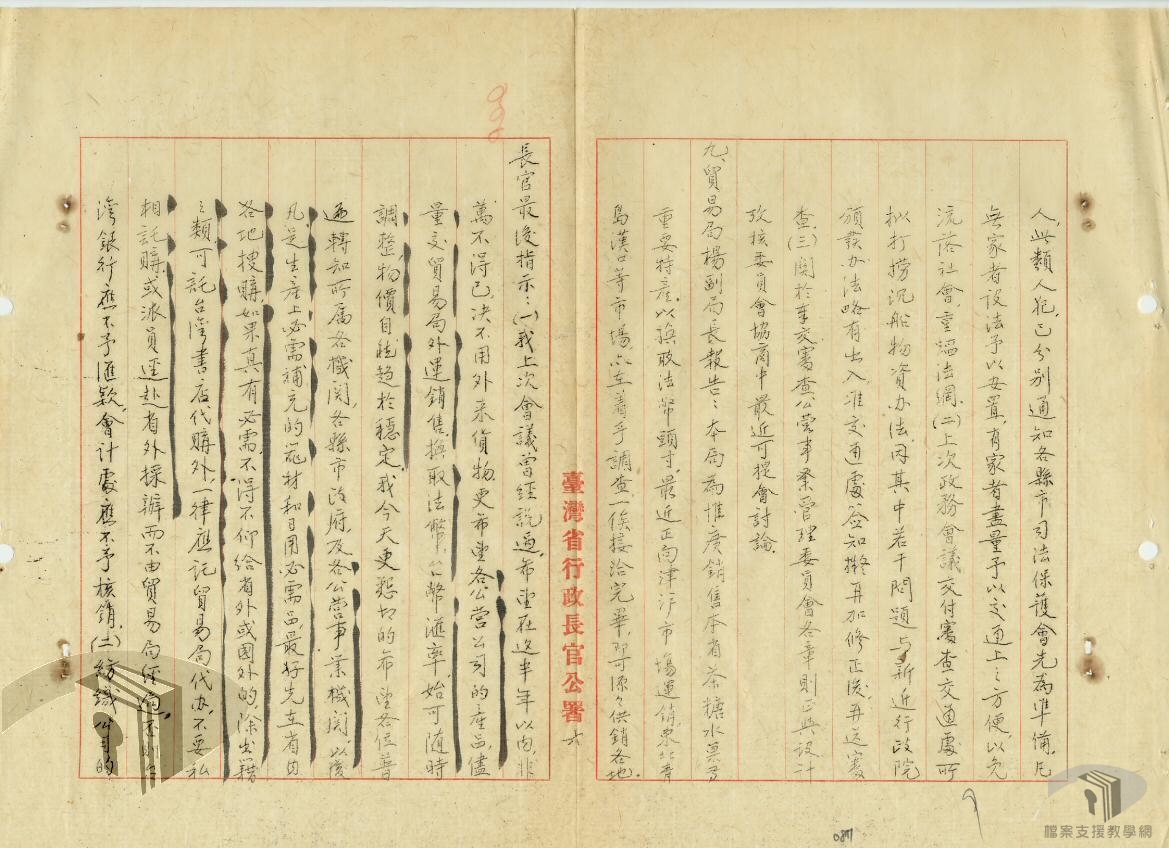 人,此類人犯,已分別通知各縣市司法保護會先為準備,凡
無家者設法予以安置,有家者盡量予以交通上之方便,以免
流落社會,重罹法網。(二)上次政務會議交付審查交通處所
拟打撈沉船物資办法,因其中若干問題与新近行政院
頒發办法略有出入,准交通處簽知擬再加修正後,再送審
查。(三)關於奉交審查公營事業管理委員會各章則,正與設計
攷核委員會協商中,最近可提會討論。
九、貿易局楊副局長報告:本局為推廣銷售本省茶糖水菓等
重要特產,以換取法幣頭寸,最近正向津滬市場運銷,東北青
島漢口等市場,亦在着手調查,一俟接洽完畢,即可源々供銷各地。
臺灣省行政長官公署 六
長官最後指示:(一)我上次會議曾經說過,希望在這半年以内,非
萬不得已,決不用外來貨物,更希望各公營公司的產品,儘
量交貿易局外運銷售,換取法幣,台幣滙率,始可随時
調整,物價自能趋於穩定,我今天更懇切的希望各位普
遍轉知所屬各機関,各縣市政府,及各公营事業機関,以後
凡是生產上必需補充的器材和日用必需品,最好先在省内
各地搜購,如果真有必需,不得不仰給省外或國外的,除書籍
之類,可託台湾書店代購外,一律應託貿易局代办,不要私
相託購,或派員逕赴省外採辦,而不由貿易局經過,否則台
湾銀行應不予滙款,會計處應不予核銷。(二)紡織公司的
087
檔案支援教學網